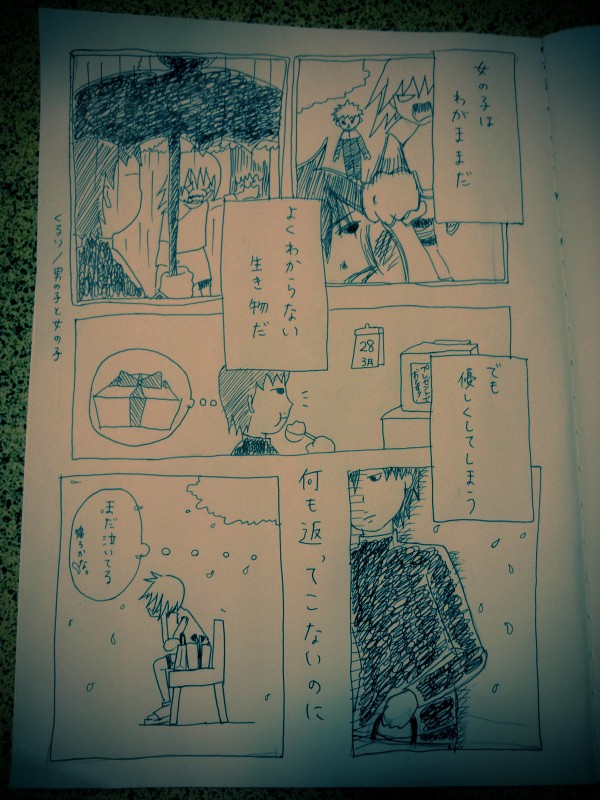 女の子は
わがままだ
よくわからない
生き物だ
くるり/男の子と女の子
でも
優しくしてしまう
28
3月
何も返ってこないのに
まだ泣いてる
帰ろかな。